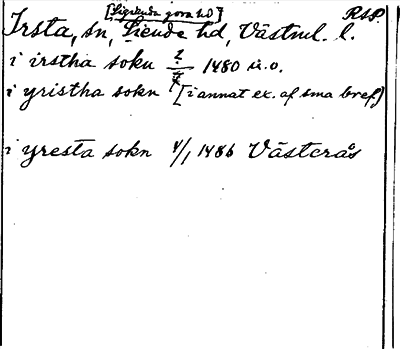 [Siende gora hd] RAP
Irsta, sn, Siende hd, Västml. l.
i irstha soku 2/4 1480 u.o.
i yristha sokn [i annat ex. af sma bref.]
i yresta sokn 4/1 1486 Västerås